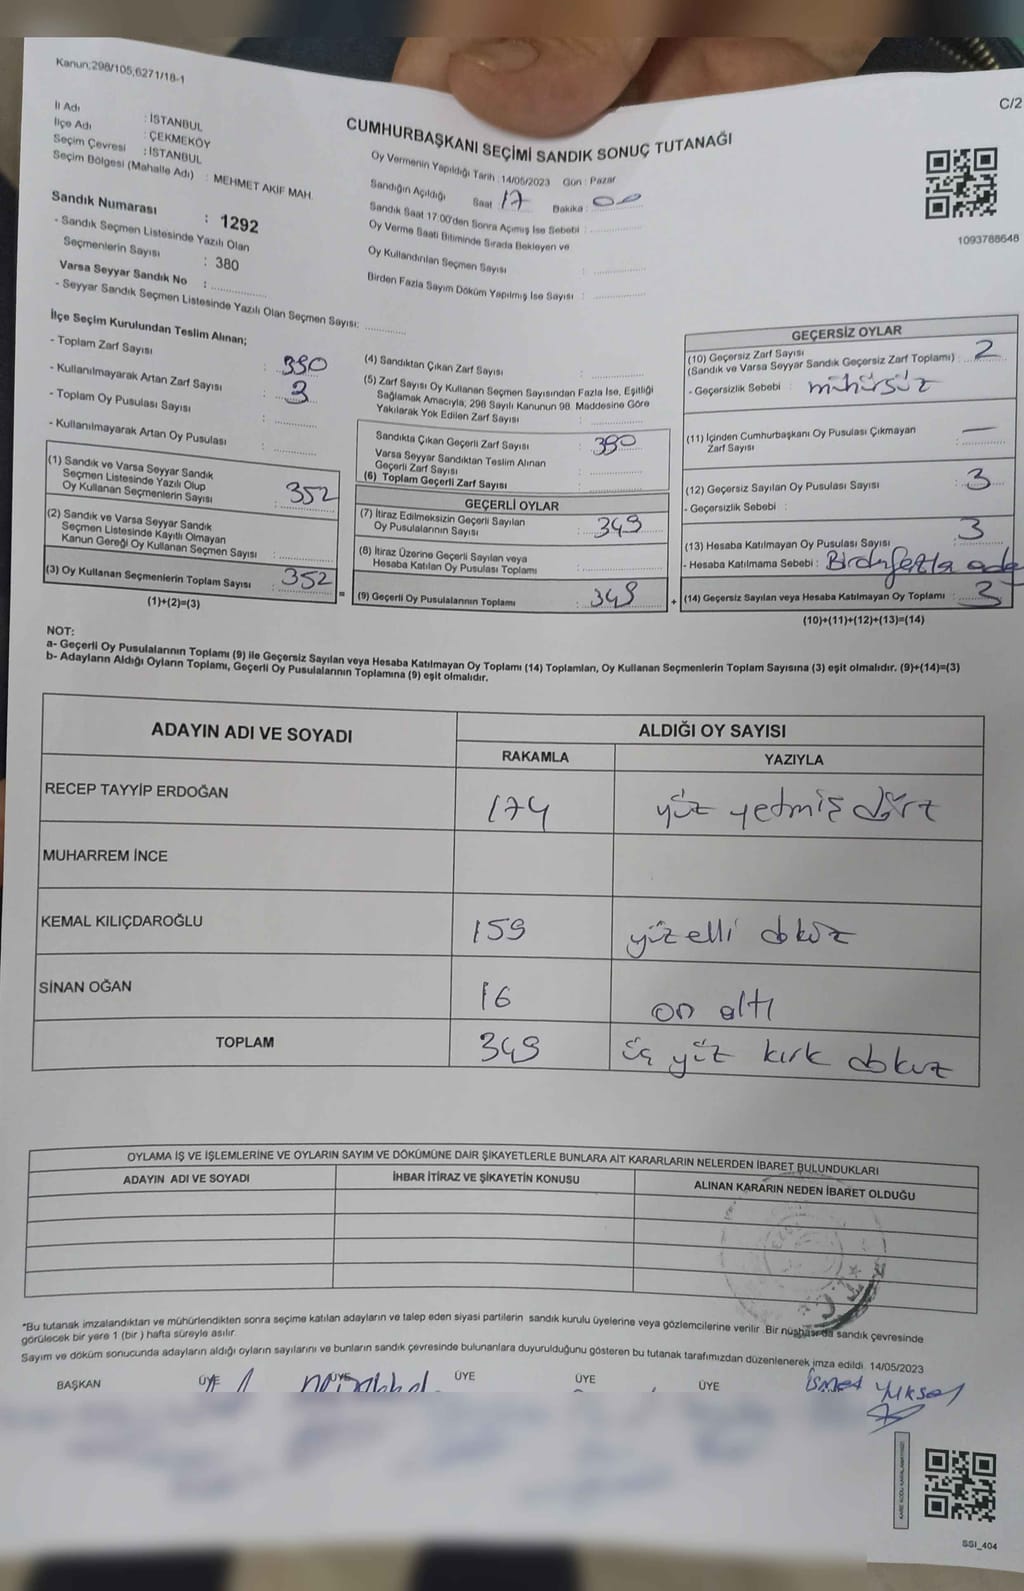 Kanun;298/105,6271/18-1
C/2
İl Adı : İSTANBUL
İlçe Adı : ÇEKMEKÖY
Seçim Çevresi : İSTANBUL
Seçim Bölgesi (Mahalle Adı) : MEHMET AKİF MAH.
Sandık Numarası : 1292
- Sandık Seçmen Listesinde Yazılı Olan
Seçmenlerin Sayısı : 380
Varsa Seyyar Sandık No :
- Seyyar Sandık Seçmen Listesinde Yazılı Olan Seçmen Sayısı:
CUMHURBAŞKANI SEÇİMİ SANDIK SONUÇ TUTANAĞI
Oy Vermenin Yapıldığı Tarih : 14/05/2023 Gün : Pazar
Sandığın Açıldığı Saat 17 Dakika : 00
Sandık Saat 17.00'den Sonra Açımış İse Sebebi :
Oy Verme Saati Bitiminde Sırada Bekleyen ve
Oy Kullandırılan Seçmen Sayısı :
Birden Fazla Sayım Döküm Yapılmış İse Sayısı :
1093788648
İlçe Seçim Kurulundan Teslim Alınan;
- Toplam Zarf Sayısı : 390
- Kullanılmayarak Artan Zarf Sayısı : 3
- Toplam Oy Pusulası Sayısı :
- Kullanılmayarak Artan Oy Pusulası :
(1) Sandık ve Varsa Seyyar Sandık
Seçmen Listesinde Yazılı Olup
Oy Kullanan Seçmenlerin Sayısı : 352
(2) Sandık ve Varsa Seyyar Sandık
Seçmen Listesinde Kayıtlı Olmayan
Kanun Gereği Oy Kullanan Seçmen Sayısı :
(3) Oy Kullanan Seçmenlerin Toplam Sayısı : 352
(1)+(2)=(3)
=
(4) Sandıktan Çıkan Zarf Sayısı :
(5) Zarf Sayısı Oy Kullanan Seçmen Sayısından Fazla İse, Eşitliği
Sağlamak Amacıyla; 298 Sayılı Kanunun 98. Maddesine Göre
Yakılarak Yok Edilen Zarf Sayısı :
Sandıkta Çıkan Geçerli Zarf Sayısı : 390
Varsa Seyyar Sandıktan Teslim Alınan
Geçerli Zarf Sayısı :
(6) Toplam Geçerli Zarf Sayısı :
GEÇERLİ OYLAR
(7) İtiraz Edilmeksizin Geçerli Sayılan
Oy Pusulalarının Sayısı : 349
(8) İtiraz Üzerine Geçerli Sayılan veya
Hesaba Katılan Oy Pusulası Toplamı :
(9) Geçerli Oy Pusulalarının Toplamı : 349
+
GEÇERSİZ OYLAR
(10) Geçersiz Zarf Sayısı
(Sandık ve Varsa Seyyar Sandık Geçersiz Zarf Toplamı) : 2
- Geçersizlik Sebebi : mühürsüz
(11) İçinden Cumhurbaşkanı Oy Pusulası Çıkmayan
Zarf Sayısı : —
(12) Geçersiz Sayılan Oy Pusulası Sayısı : 3
- Geçersizlik Sebebi :
(13) Hesaba Katılmayan Oy Pusulası Sayısı : 3
- Hesaba Katılmama Sebebi :
(14) Geçersiz Sayılan veya Hesaba Katılmayan Oy Toplamı : 3
(10)+(11)+(12)+(13)=(14)
NOT:
a- Geçerli Oy Pusulalarının Toplamı (9) ile Geçersiz Sayılan veya Hesaba Katılmayan Oy Toplamı (14) Toplamları, Oy Kullanan Seçmenlerin Toplam Sayısına (3) eşit olmalıdır. (9)+(14)=(3)
b- Adayların Aldığı Oyların Toplamı, Geçerli Oy Pusulalarının Toplamına (9) eşit olmalıdır.
ADAYIN ADI VE SOYADI ALDIĞI OY SAYISI
RAKAMLA YAZIYLA
RECEP TAYYİP ERDOĞAN 174 yüz yetmiş dört
MUHARREM İNCE
KEMAL KILIÇDAROĞLU 159 yüz elli dokuz
SİNAN OĞAN 16 on altı
TOPLAM 349 üç yüz kırk dokuz
OYLAMA İŞ VE İŞLEMLERİNE VE OYLARIN SAYIM VE DÖKÜMÜNE DAİR ŞİKAYETLERLE BUNLARA AİT KARARLARIN NELERDEN İBARET BULUNDUKLARI
ADAYIN ADI VE SOYADI İHBAR İTİRAZ VE ŞİKAYETİN KONUSU ALINAN KARARIN NEDEN İBARET OLDUĞU
*Bu tutanak imzalandıktan ve mühürlendikten sonra seçime katılan adayların ve talep eden siyasi partilerin sandık kurulu üyelerine veya gözlemcilerine verilir. Bir nüshası da sandık çevresinde
görülecek bir yere 1 (bir ) hafta süreyle asılır.
Sayım ve döküm sonucunda adayların aldığı oyların sayılarını ve bunların sandık çevresinde bulunanlara duyurulduğunu gösteren bu tutanak tarafımızdan düzenlenerek imza edildi. 14/05/2023
BAŞKAN ÜYE ÜYE ÜYE ÜYE ÜYE İsmet Yüksel
SSI_404